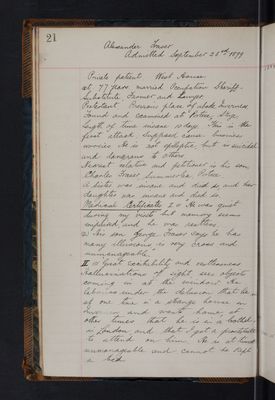 21
Alexander Fraser
Admitted September 28th 1899
Private patient West House
at 77 years married Occupation Sheriff-
Substitute Farmer and Lawyer.
Protestant Previous place of abode Inverness
Found and examined at Portree, Skye
Length of time insane 10 days This is the
first attack Supposed cause business
worries He is not epileptic but is suicidal
and dangerous to others.
Nearest relative and petitioner is his son
Charles Fraser Portree
A sister was insane and died so and her
daughter was insane and died so.
Medical Certificates I (1) He was quiet
during my visit but memory seems
impaired and he was restless
(2) His son George Fraser says he has
many illusions is very cross and
unmanageable.
II (1) Great excitability and restlessness
Hallucinations of sight, sees objects
coming in at the window He
labours under the delusion that he is
at one time in a strange house in
Inverness and wants home at
other times that he is in a brothel
in London and that I got a prostitute
to attend on him. He is at times
unmanageable and cannot be kept
in bed.